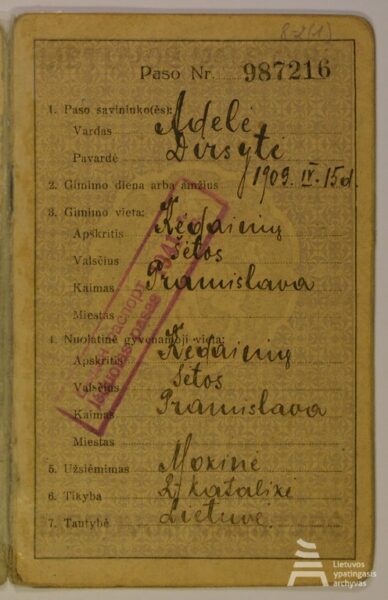 Paso Nr. 987216
1. Paso savininko(ės):
Vardas Adelė
Pavardė Dirsytė
2. Gimimo diena arba amžius 1909. IV. 15 d.
3. Gimimo vieta:
Apskritis Kėdainių
Valsčius Šėtos
Kaimas Pramislava
Miestas
4. Nuolatinė gyvenamoji vieta:
Apskritis Kėdainių
Valsčius Šėtos
Kaimas Pramislava
Miestas
5. Užsiėmimas Mokinė
6. Tikyba R. katalikė
7. Tautybė Lietuvė.
паспорт
pasas
Lietuvos
ypatingasis
archyvas